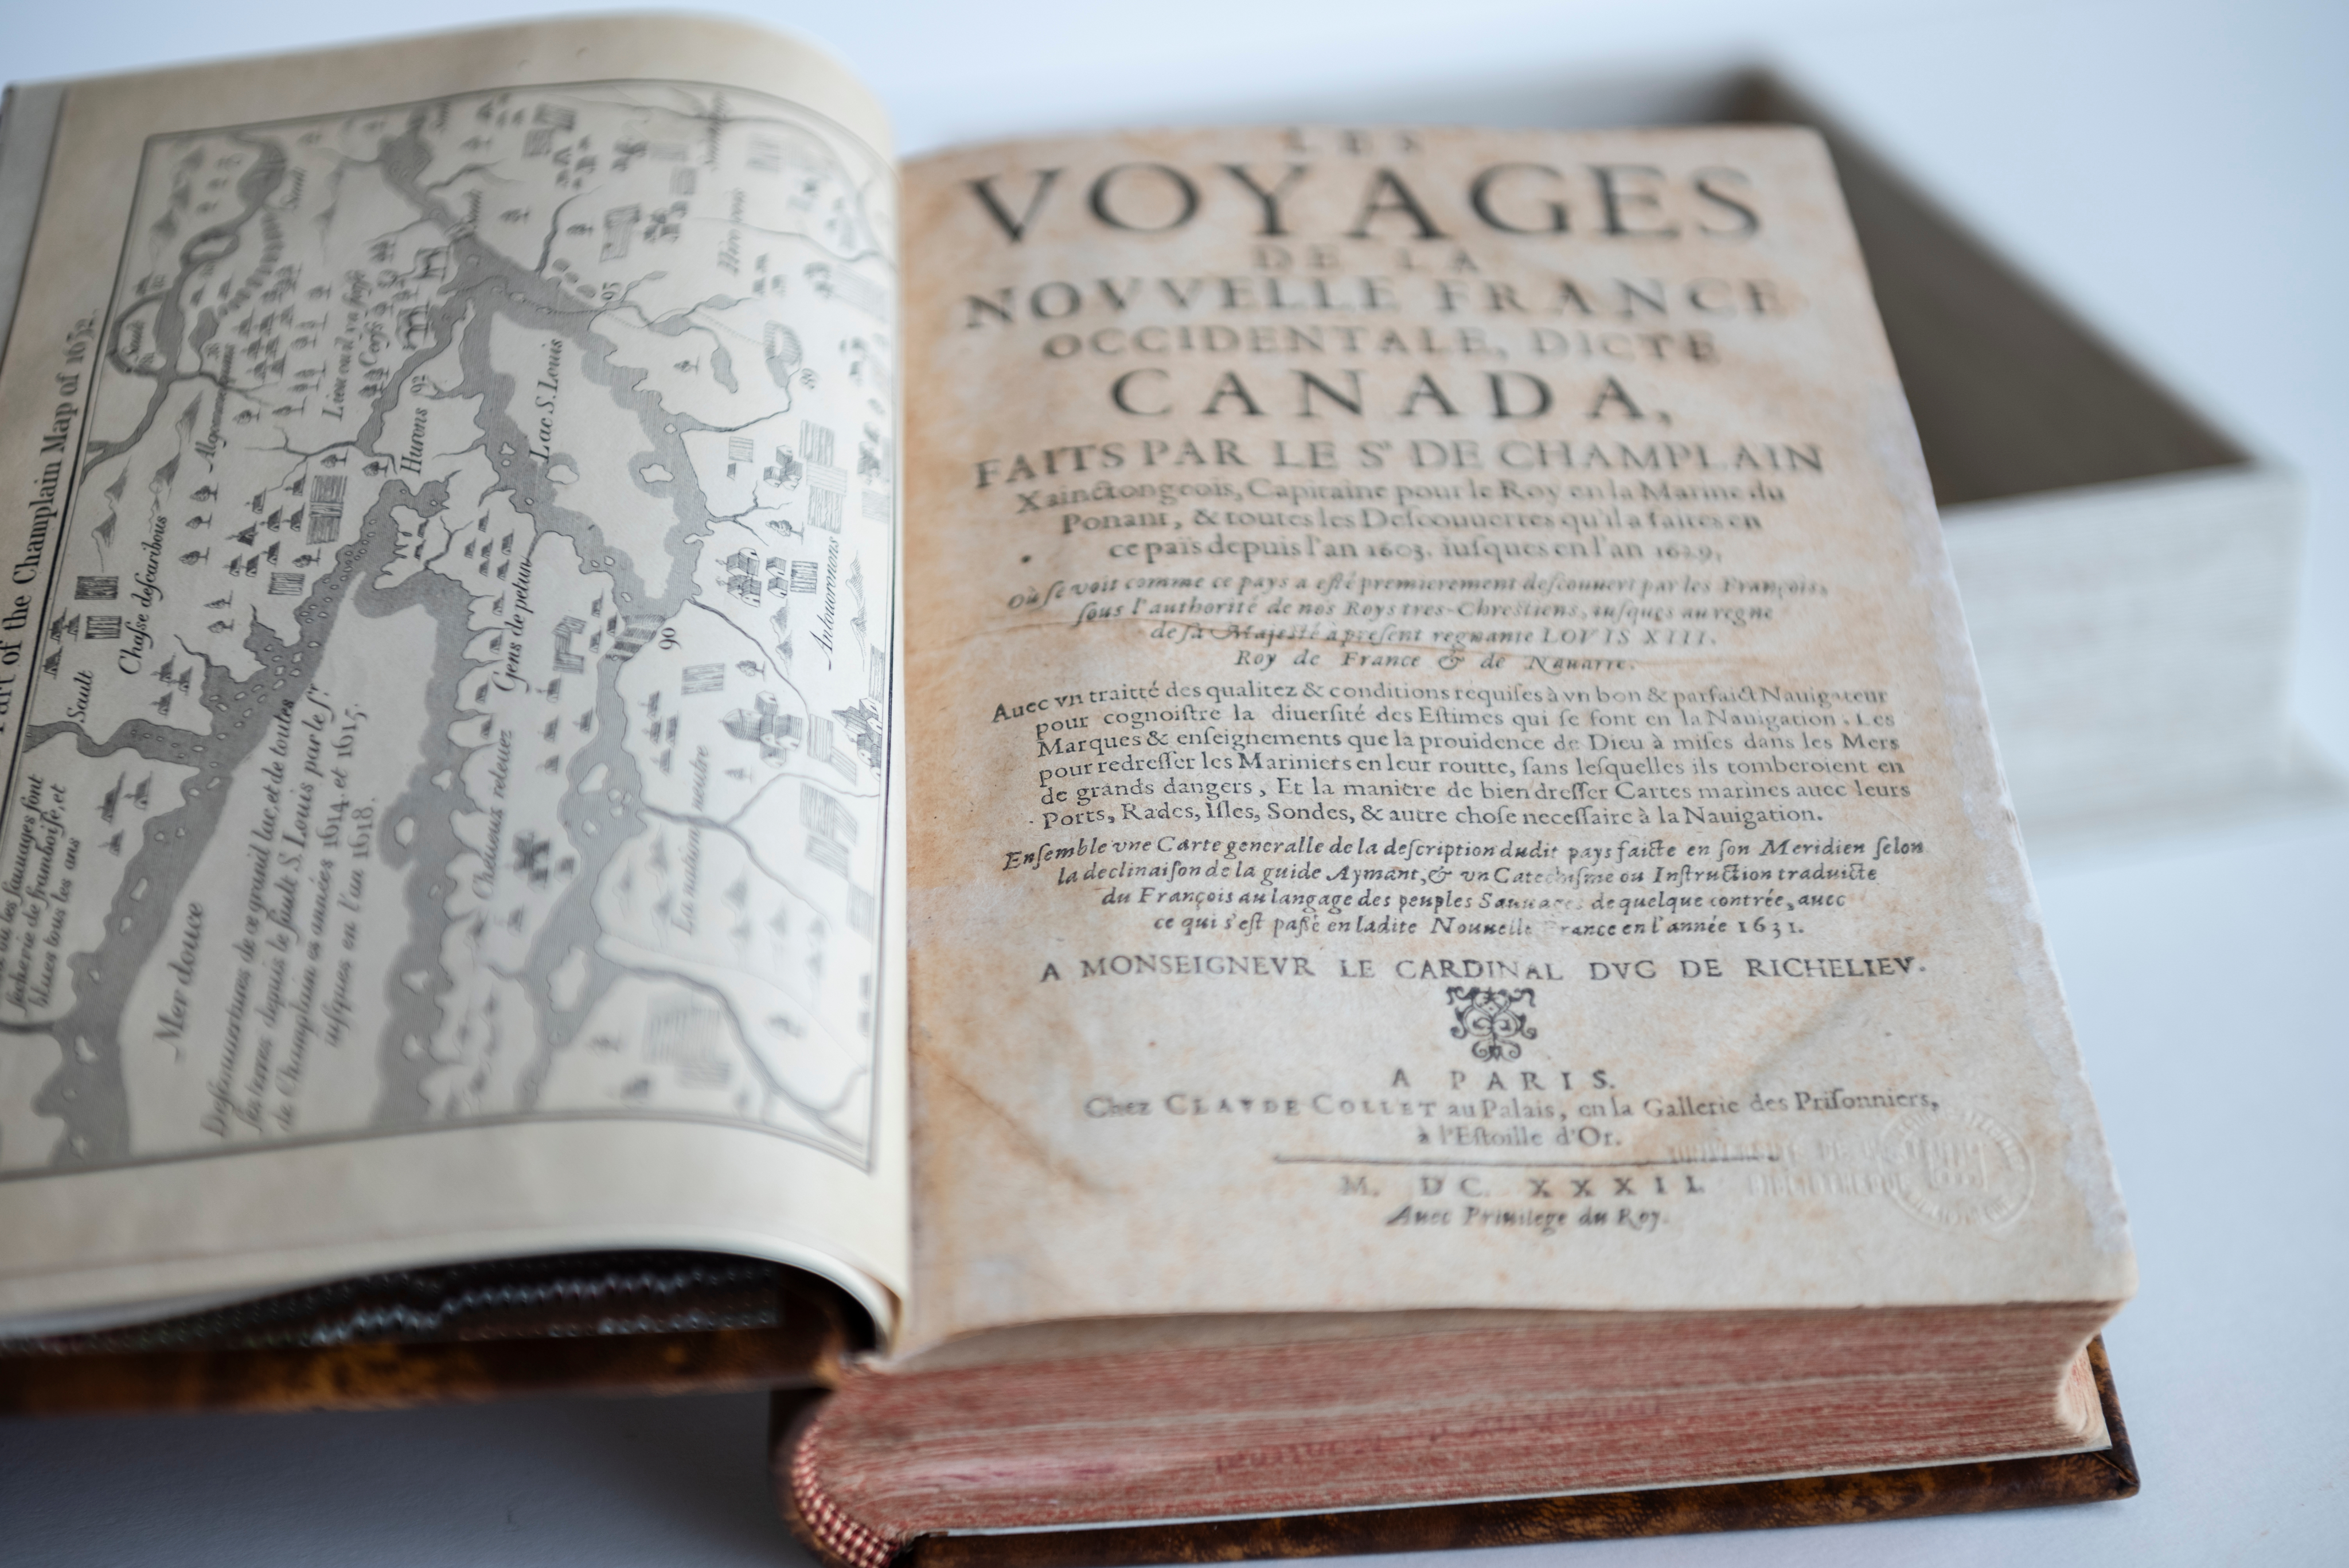 Part of the Champlain Map of 1632.
Sault
Chasse des caribous
Algommequins
Lieu ou il va force
Cerfs
Hurons
92
Lac S. Louis
Gens de petun
Chaueus releuez
La nation neutre
Antouoronons
90
Mer douce
Descouuertures de ce grand lac, et de toutes
les terres depuis le sault S. Louis par le sr.
de Champlain es années 1614. et 1615.
iusques en l'an 1618.
les sauuages font
secherie de framboise, et
blues tous les ans
LES
VOYAGES
DE LA
NOVVELLE FRANCE
OCCIDENTALE, DICTE
CANADA,
FAITS PAR LE Sr DE CHAMPLAIN
Xainctongeois, Capitaine pour le Roy en la Marine du
Ponant, & toutes les Deſcouuertes qu'il a faites en
ce païs depuis l'an 1603. iuſques en l'an 1629.
Où ſe voit comme ce pays a eſté premierement deſcouuert par les François,
ſous l'authorité de nos Roys tres-Chreſtiens, iuſques au regne
de ſa Majeſté à preſent regnante LOVIS XIII.
Roy de France & de Nauarre.
Auec vn traitté des qualitez & conditions requiſes à vn bon & parfaict Nauigateur
pour cognoiſtre la diuerſité des Eſtimes qui ſe font en la Nauigation. Les
Marques & enſeignements que la prouidence de Dieu à miſes dans les Mers
pour redreſſer les Mariniers en leur routte, ſans leſquelles ils tomberoient en
de grands dangers, Et la maniere de bien dreſſer Cartes marines auec leurs
Ports, Rades, Iſles, Sondes, & autre choſe neceſſaire à la Nauigation.
Enſemble vne Carte generalle de la deſcription dudit pays faicte en ſon Meridien ſelon
la declinaiſon de la guide Aymant, & vn Catechiſme ou Inſtruction traduicte
du François au langage des peuples Sauuages de quelque contrée, auec
ce qui s'eſt paſſé en ladite Nouuelle France en l'année 1631.
A MONSEIGNEVR LE CARDINAL DVC DE RICHELIEV.
A PARIS.
Chez CLAVDE COLLET au Palais, en la Gallerie des Priſonniers,
à l'Eſtoille d'Or.
M. DC. XXXII.
Auec Priuilege du Roy.